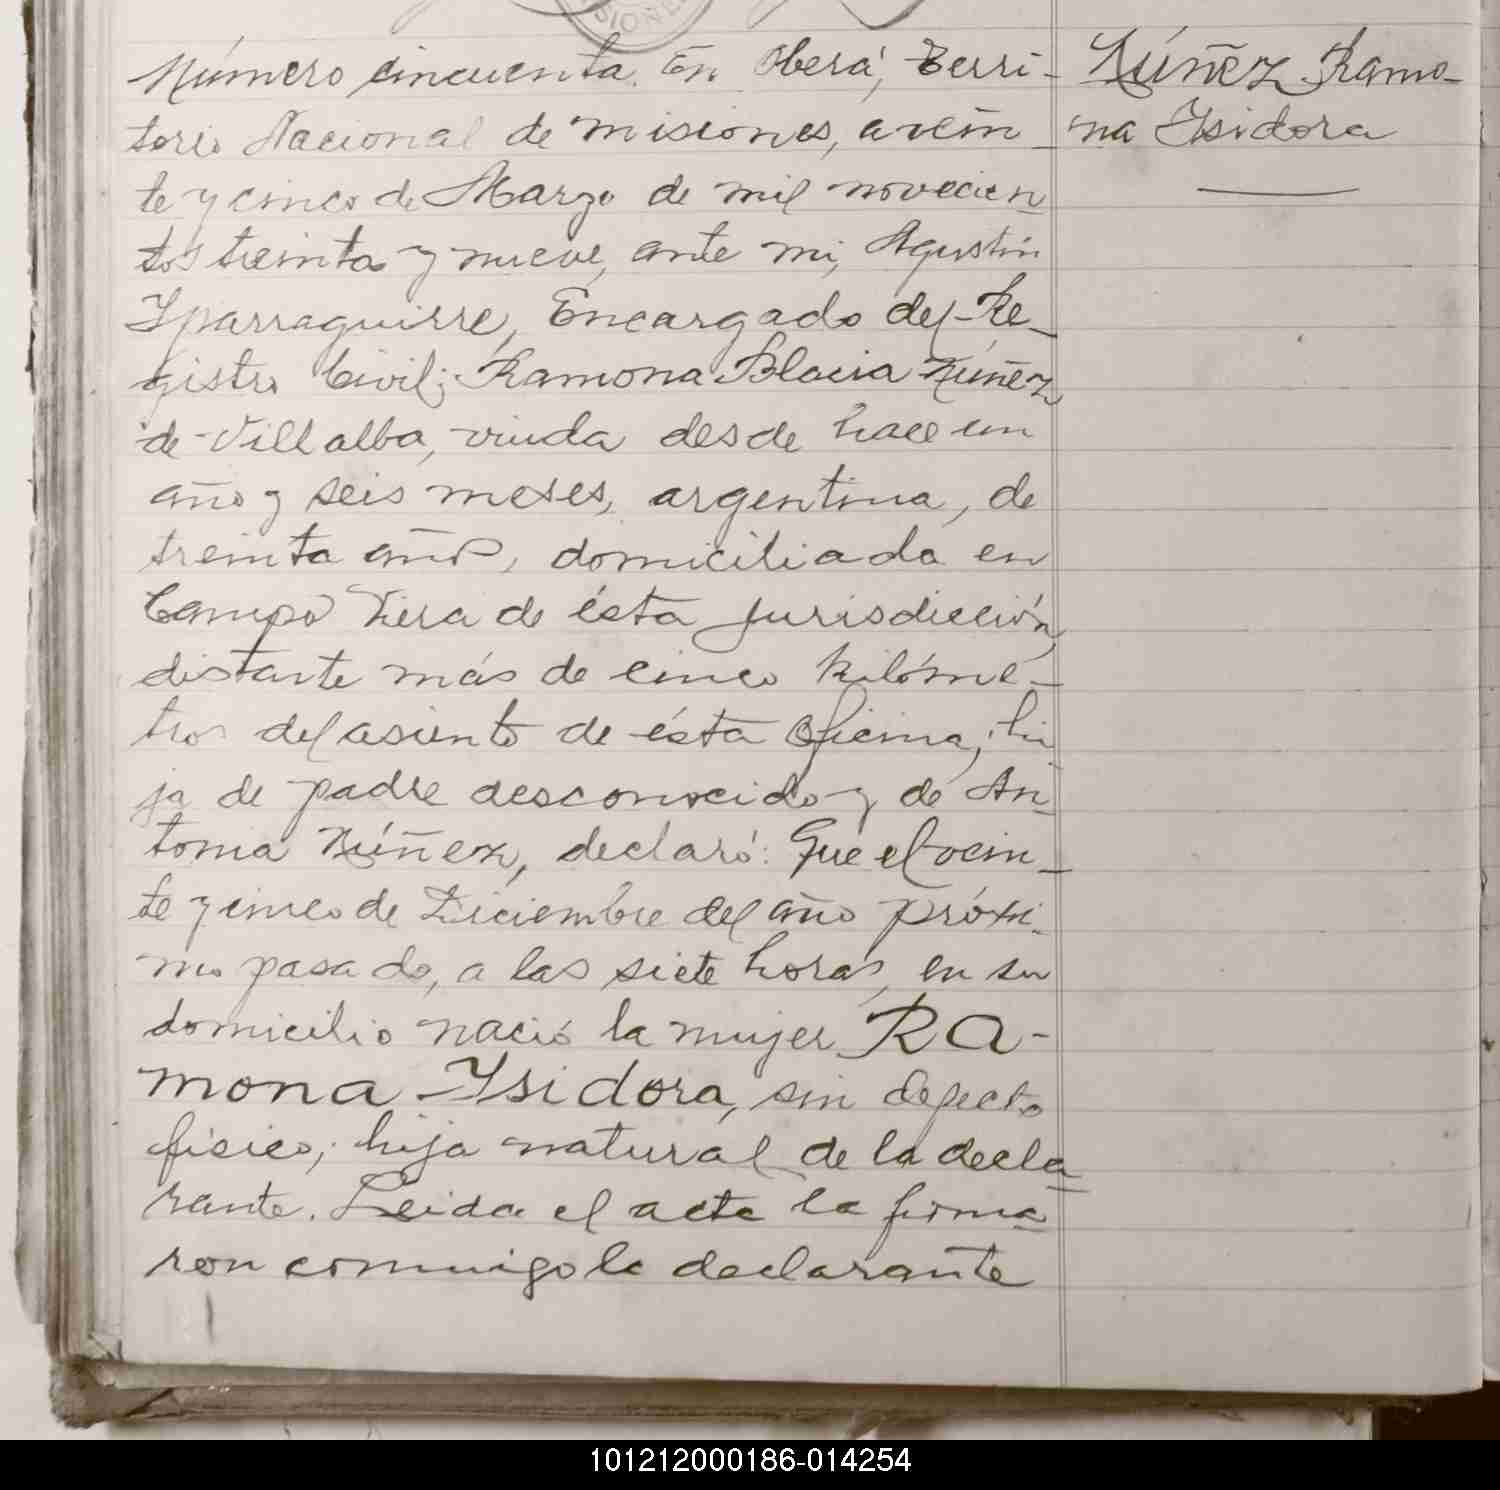 Número cincuenta. En Oberá, Terri-
torio Nacional de Misiones, a vein-
te y cinco de Marzo de mil novecien
tos treinta y nueve, ante mi, Agustin
Yparraguirre, Encargado del Re-
gistro Civil; Ramona Blacia Núñez
de Villalba, viuda desde hace un
año y seis meses, argentina, de
treinta años, domiciliada en
Campo Viera de ésta jurisdicción,
distante más de cinco kilóme-
tros del asiento de ésta Oficina; hi
ja de padre desconocido y de An
tonia Núñez, declaró: Que el vein-
te y cinco de Diciembre del año próxi-
mo pasado, a las siete horas, en su
domicilio nació la mujer Ra-
mona Ysidora, sin defecto
físico; hija natural de la decla
rante. Leida el acta la firma
ron conmigo la declarante
Núñez Ramo-
na Ysidora
SIONE
101212000186-014254